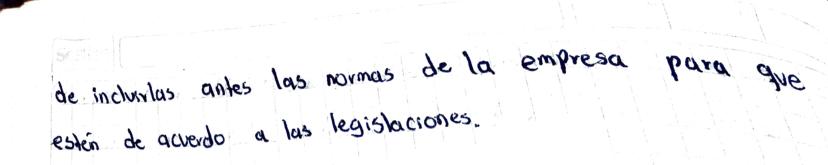 de incluirlas antes las normas de la empresa para que
estén de acuerdo a las legislaciones.